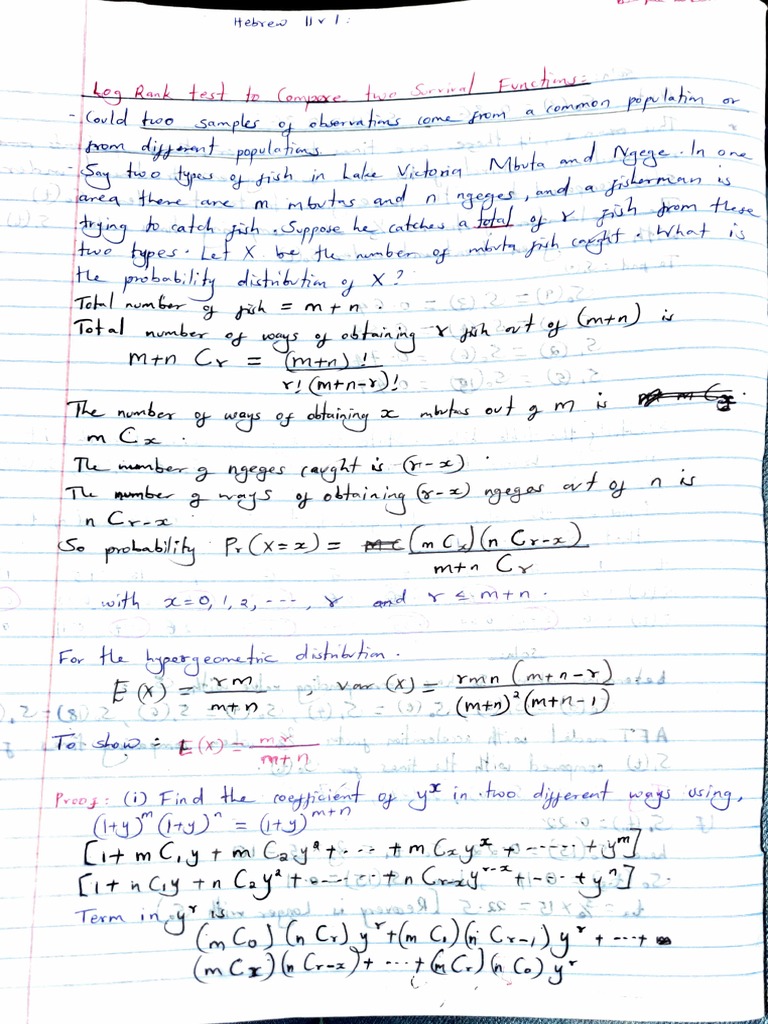 Hebrew 11 v 1:
Log Rank test to Compare two Survival Functions:
- Could two samples of observations come from a common population or
from different populations
- Say two types of fish in Lake Victoria Mbuta and Ngege. In one
area there are m mbutas and n ngeges, and a fisherman is
trying to catch fish. Suppose he catches a total of r fish from these
two types. Let X be the number of mbuta fish caught. What is
the probability distribution of X?
Total number of fish = m+n.
Total number of ways of obtaining r fish out of (m+n) is
m+n Cr = (m+n)! / r!(m+n-r)!
The number of ways of obtaining x mbutas out of m is
m Cx.
The number of ngeges caught is (r-x).
The number of ways of obtaining (r-x) ngeges out of n is
n Cr-x
So probability Pr(X=x) = (m Cx)(n Cr-x) / m+n Cr
with x=0,1,2,---, r and r ≤ m+n.
For the hypergeometric distribution.
E(X) = rm / m+n , var(X) = rmn(m+n-r) / (m+n)²(m+n-1)
To show: E(X) = mr / m+n
Proof: (i) Find the coefficient of y^x in two different ways using,
(1+y)^m (1+y)^n = (1+y)^m+n
[1+ m C1y + m C2y² + --- + m Cxy^x + ----- + y^m]
[1+ n C1y + n C2y² + ----- + n Cr-xy^r-x + --- + y^n].
Term in y^r is
(m C0)(n Cr) y^r + (m C1)(n Cr-1) y^r + ---+
(m Cx)(n Cr-x) + ---+ (m Cr)(n C0) y^r